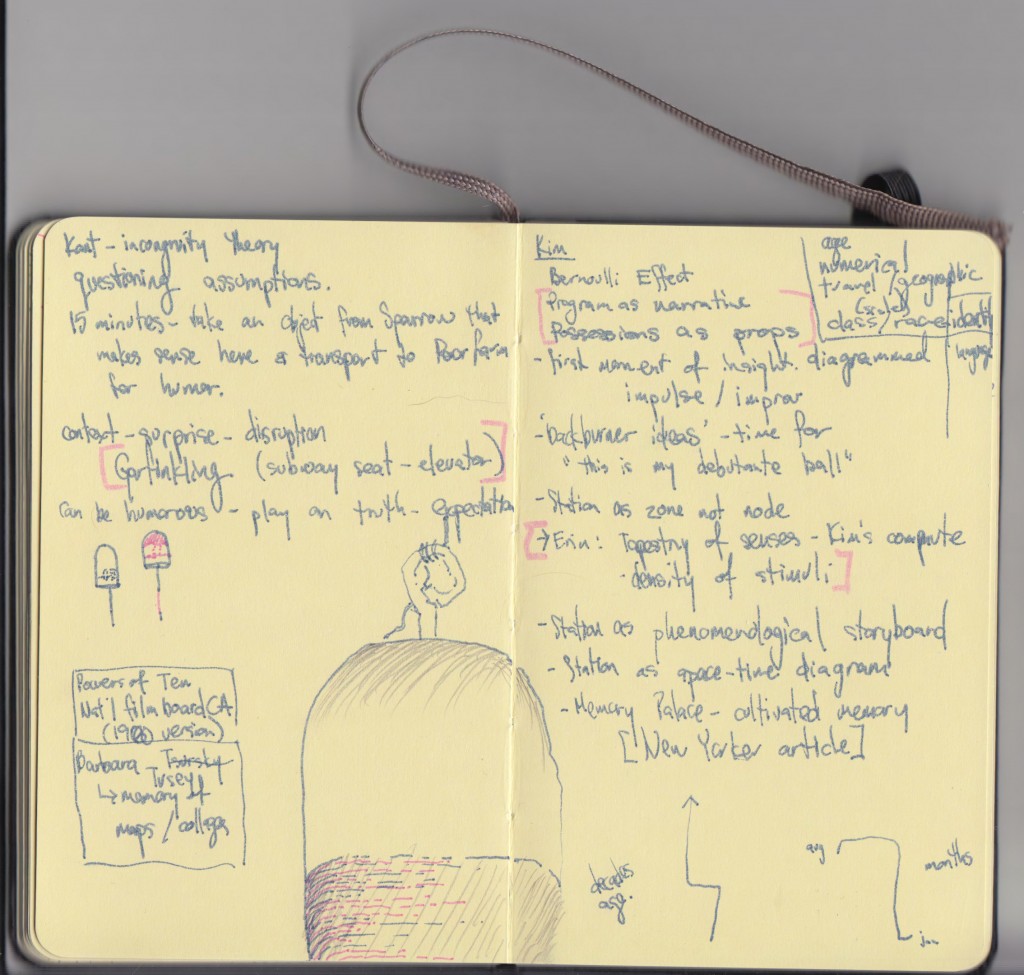 Kant - incongruity theory
questioning assumptions.
15 minutes - take an object from Sparrow that
makes sense here & transport to Poor farm
for humor.
context - surprise - disruption
(subway seat - elevator)
can be humorous - play on truth - expectation
Powers of Ten
Nat'l film board CA
version)
Barbara
↳ memory of
maps / collages
Kim
Bernoulli Effect
Program as narrative
Possessions as props
- first moment of insight. diagrammed
impulse / improv
- 'backburner ideas' - time for
"this is my debutante ball"
- Station as zone not node
→ Erin: Tapestry of senses - Kim's commute
- density of stimuli
- Station as phenomenological storyboard
- Station as space-time diagram
- Memory Palace - cultivated memory
[New Yorker article]
age
numerical
travel / geographic
(social)
class / race identity
language
decades
avg.
avg
months
jan